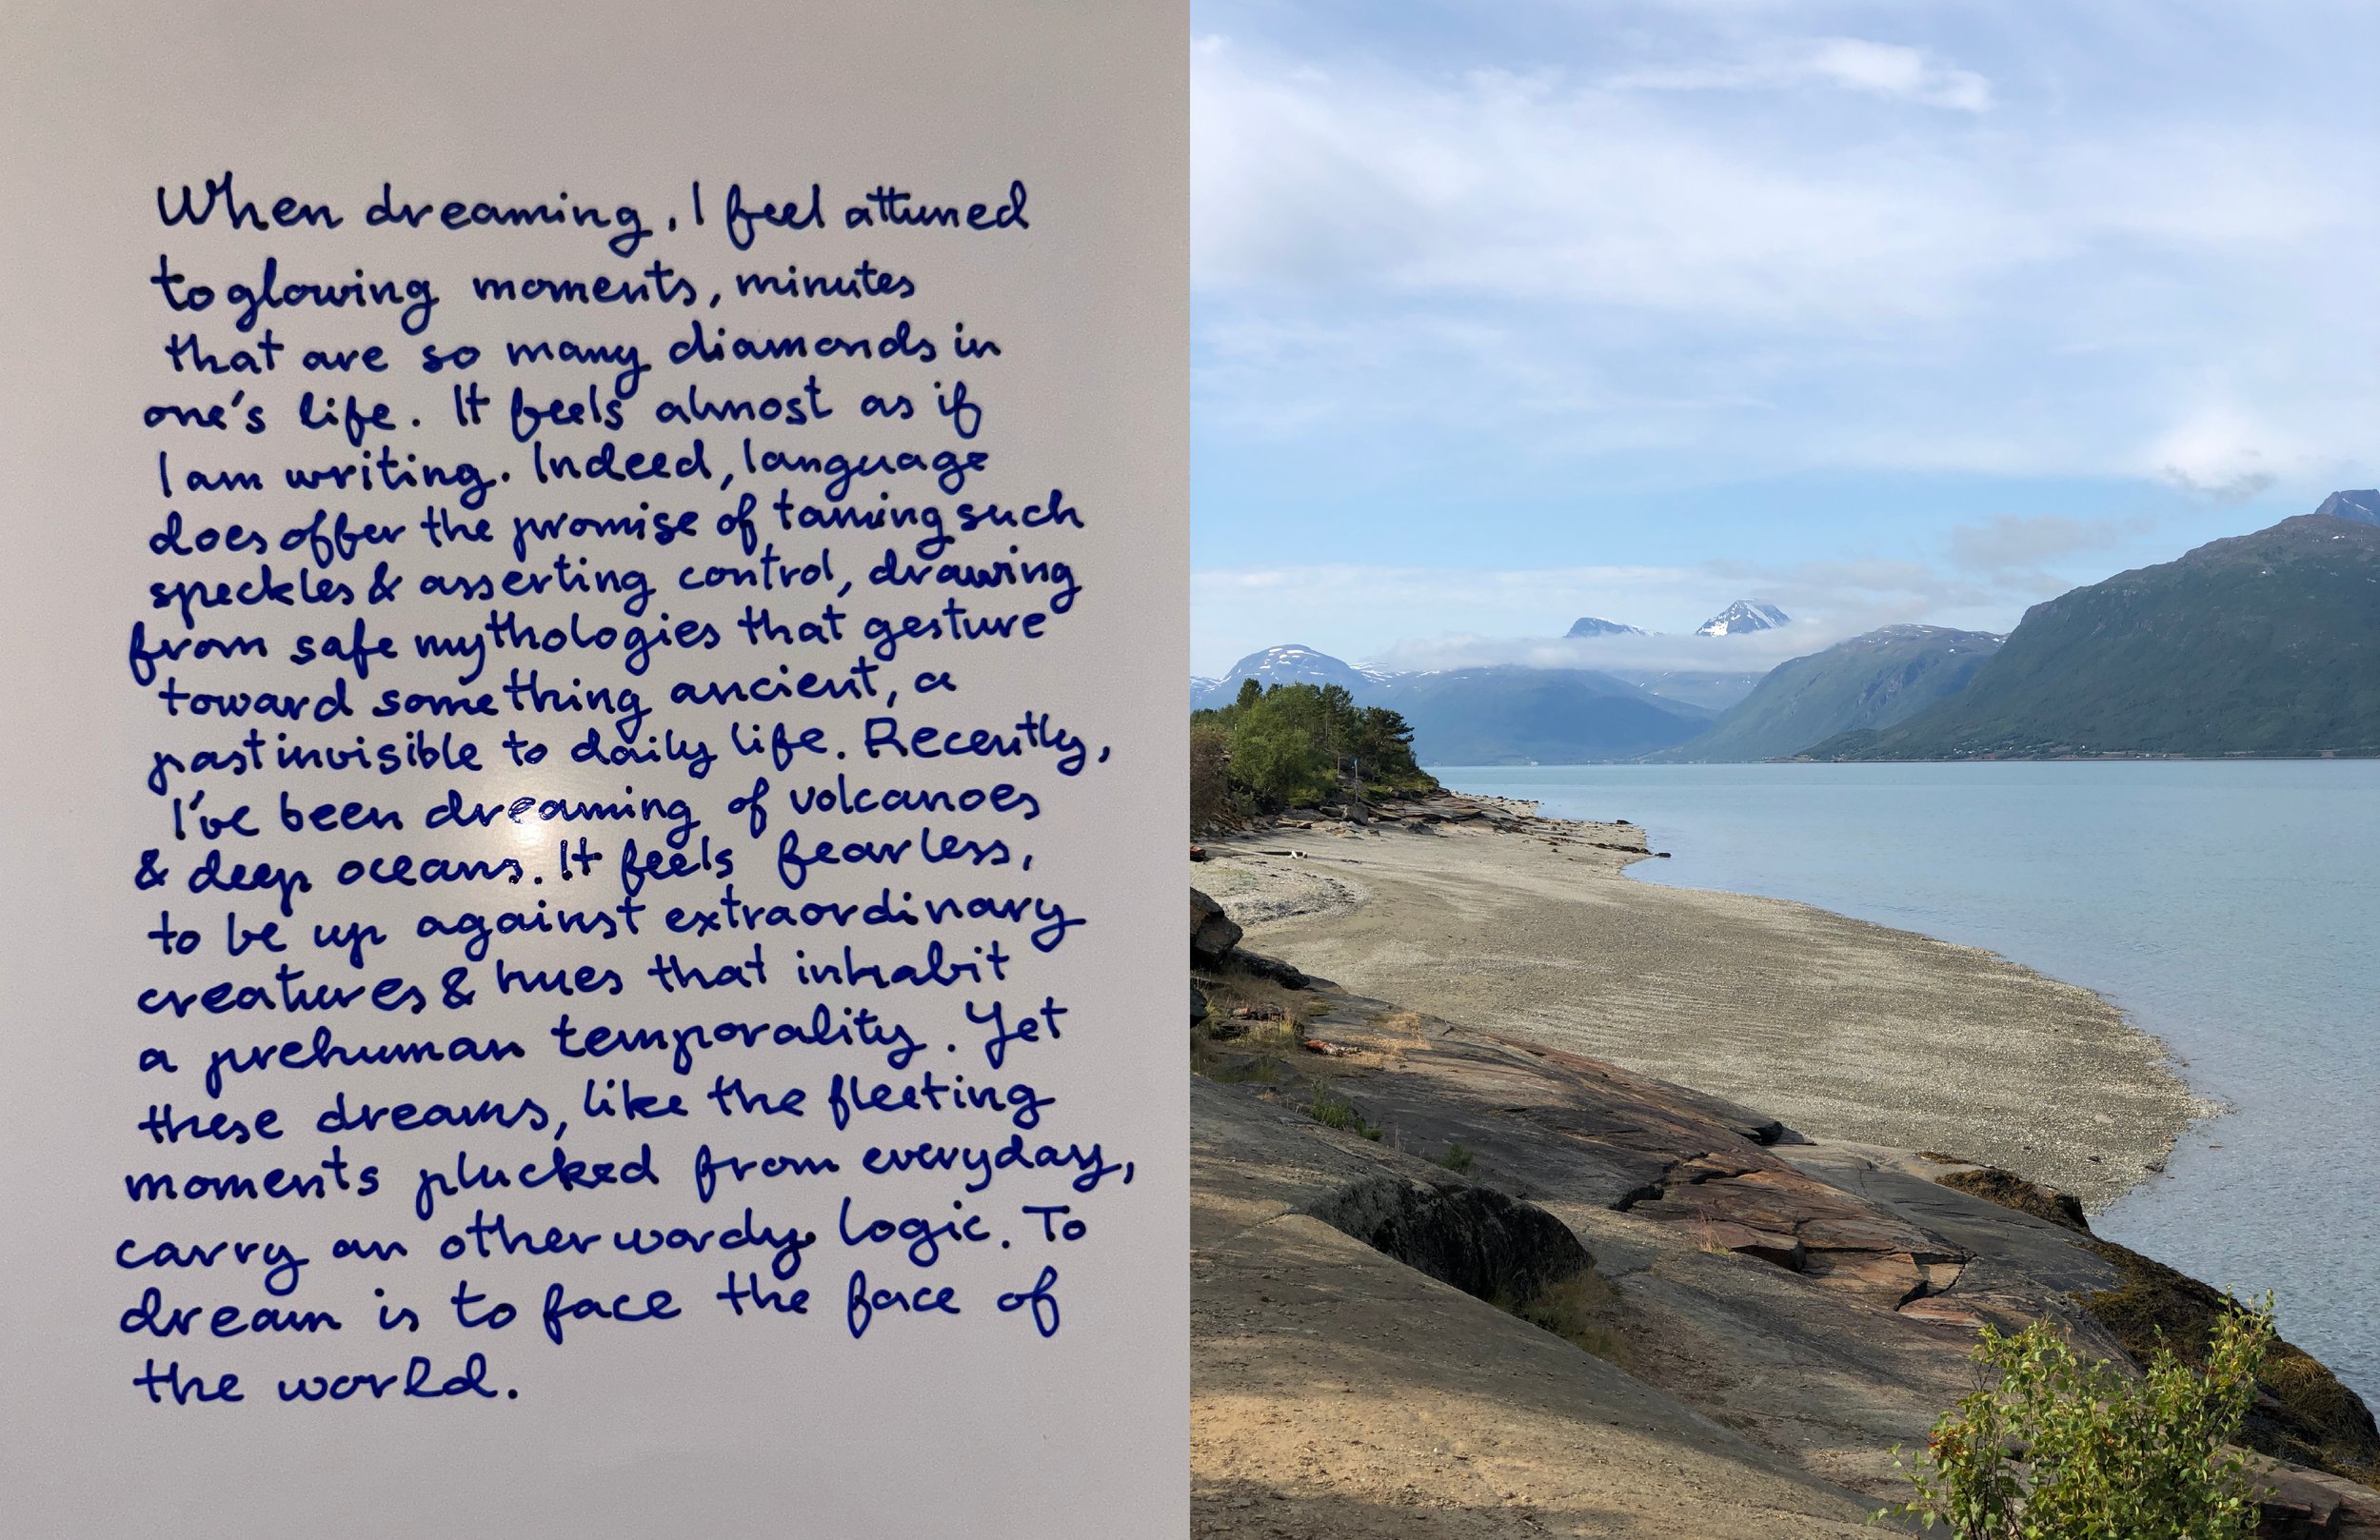 When dreaming, I feel attuned
to glowing moments, minutes
that are so many diamonds in
one's life. It feels almost as if
I am writing. Indeed, language
does offer the promise of taming such
speckles & asserting control, drawing
from safe mythologies that gesture
toward something ancient, a
past invisible to daily life. Recently,
I've been dreaming of volcanoes
& deep oceans. It feels fearless,
to be up against extraordinary
creatures & hues that inhabit
a prehuman temporality. Yet
these dreams, like the fleeting
moments plucked from everyday,
carry an otherwordy logic. To
dream is to face the face of
the world.